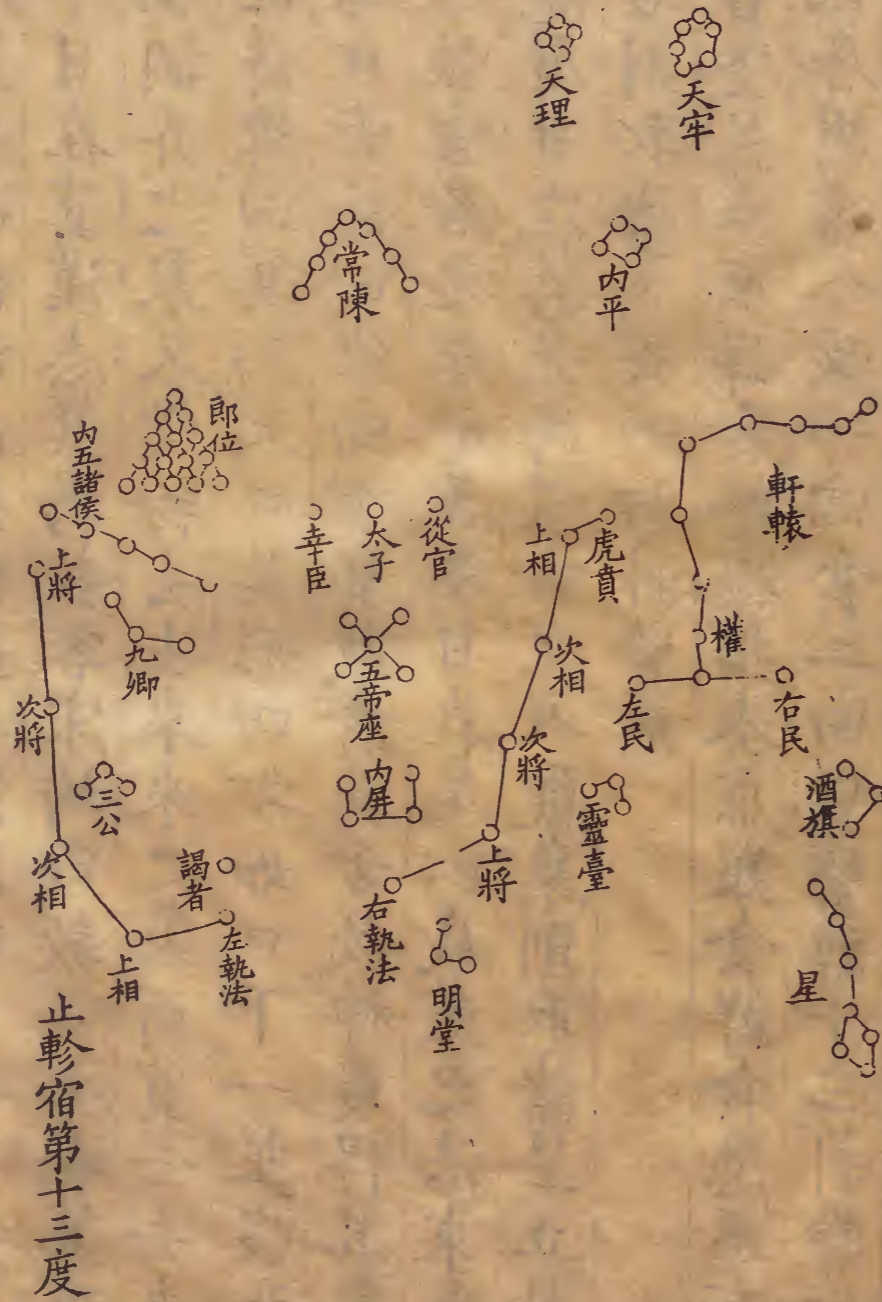 天牢
天理
內平
常陳
軒轅
權
右民
左民
酒旗
星
虎賁
上相
次相
次將
上將
右執法
靈臺
明堂
從官
太子
幸臣
五帝座
內屏
郎位
內五諸侯
上將
九卿
次將
三公
次相
謁者
上相
左執法
止軫宿第十三度